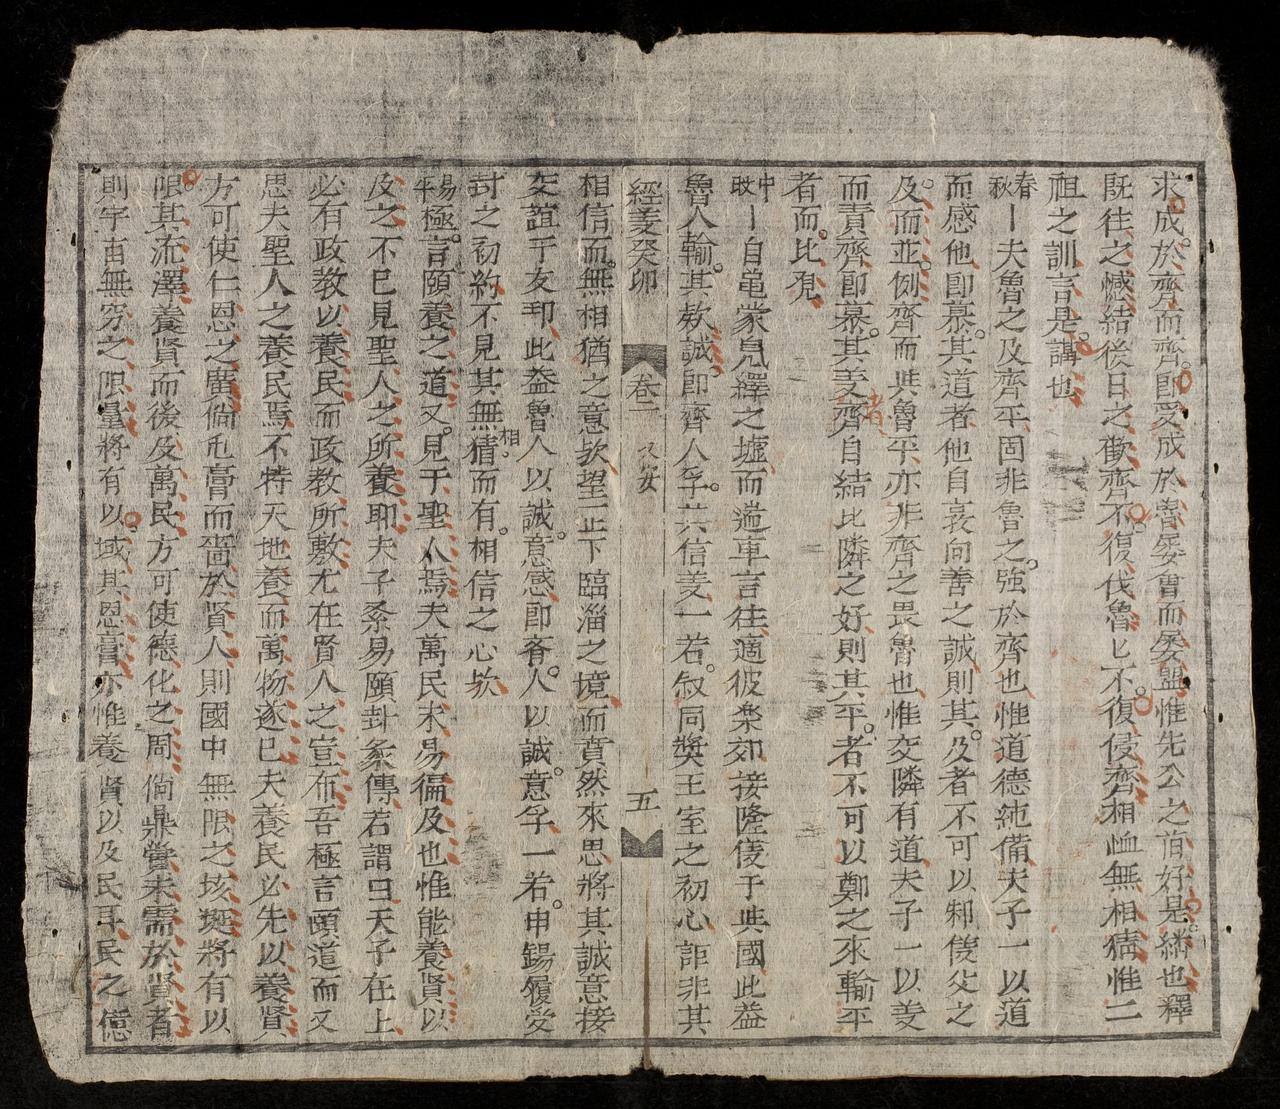 求成於齊而齊即受成於魯晏會而晏盟惟先公之前好是繕也釋
既往之憾結後日之歡齊不復伐魯匕不復侵齊相恤無相猜惟二
祖之訓言是講也
春秋 夫魯之及齊平固非魯之強於齊也惟道德純備夫子一以道
而感他即慕其道者他自衰向善之誠則其及者不可以邾儀父之
及而並例齊而與魯平亦非齊之畏魯也惟交隣有道夫子一以姜
而責齊即慕其姜齊者自結比隣之好則其平者不可以鄭之來輸平
者而比覌
中敢 自亀蒙鳬繹之墟而遄車言往適彼楽郊接隆儀于與國此益
魯人輸其欵誠即齊人孚共信姜一若叙同獎王室之初心詎非其
經姜癸卯 卷二 五
相信而無相猶之意欤望二山下臨淄之境而賁然來思將其誠意接
交誼于友邦此益魯人以誠意感即客人以誠意孚一若申錫履受
封之初約不見其無相猜而有相信之心欤
易平 極言頤養之道又見于聖人焉夫萬民未易徧及也惟能養賢以
及之不已見聖人之所養耶夫子系易頤卦彖傳若謂曰天子在上
必有政教以養民而政教所敷尤在賢人之宣布吾極言頤道而又
思夫聖人之養民焉不特天地養而萬物遂已夫養民必先以養賢
方可使仁恩之廣倘屯膏而嗇於賢人則國中無限之垓埏將有以
限其流澤養賢而後及萬民方可使德化之周倘鼎養未需於賢者
則宇宙無窮之限量將有以域其恩膏亦惟養賢以及民耳民之億